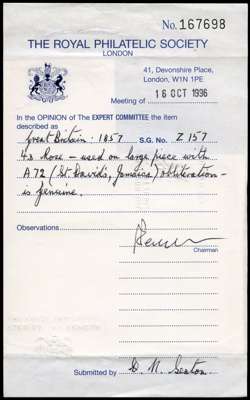 No. 167698
THE ROYAL PHILATELIC SOCIETY
LONDON
41, Devonshire Place,
London, W1N 1PE
Meeting of 16 OCT 1996
In the OPINION of The EXPERT COMMITTEE the item
described as
Great Britain: 1857 S.G. No. Z 157
4d Rose - used on large piece with
A 72 (St Davids, Jamaica) obliteration -
is genuine.
Observations
Chairman
Submitted by G. N. Seaton